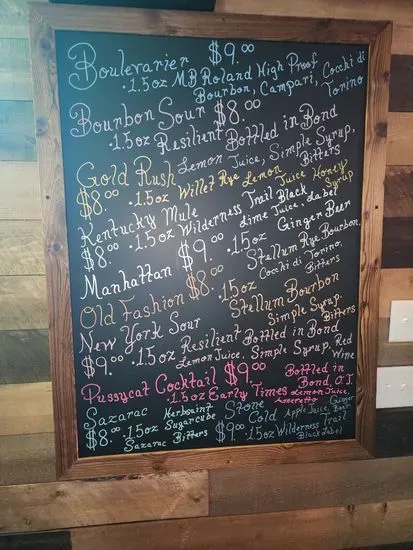 Boulevarier $9.00
.1.5oz MB Roland High Proof
Bourbon, Campari, Cocchi di
Torino
Bourbon Sour $8.00
.1.5oz Resilient Bottled in Bond
Lemon Juice, Simple Syrup,
Bitters
Gold Rush
$8.00 .1.5oz Willet Rye Lemon
Juice Honey
Syrup
Kentucky Mule
$8.00 .1.5oz Wilderness Trail Black
Label
Lime Juice, Ginger Beer
Manhattan $9.00 .1.5oz
Stellum Rye Bourbon,
Cocchi di Torino,
Bitters
Old Fashion $8.00 .1.5oz
Stellum Bourbon
Simple Syrup
Bitters
New York Sour
$9.00 .1.5oz Resilient Bottled in Bond
Lemon Juice, Simple Syrup, Red
Wine
Pussycat Cocktail $9.00
.1.5oz Early Times Bottled in
Bond, O.J.
Lemon Juice,
Amaretto
Sazarac Herbsaint
$8.00 .1.5oz Sugarcube
Sazarac Bitters
Stone
Cold Apple Juice, Ginger
Beer
$9.00 .1.5oz Wilderness Trail
Black Label